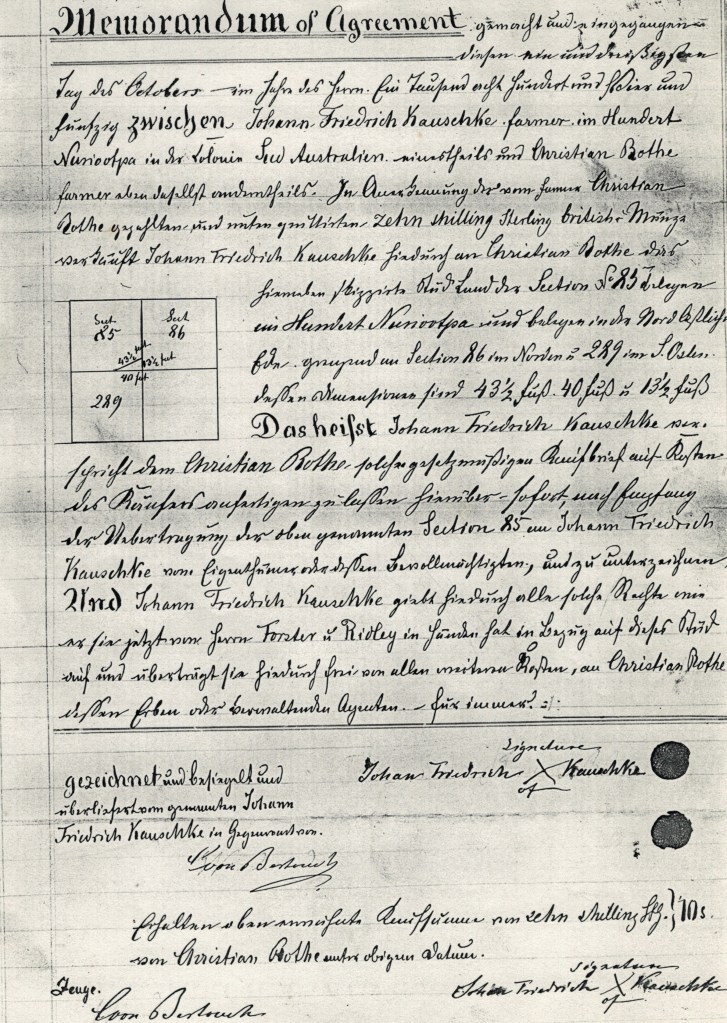 Memorandum of Agreement gemacht und eingegangen
diesen ein und dreißigsten
Tag des Octobers im Jahre des Herrn Ein Tausend acht Hundert und Vier und
funfzig zwischen Johann Friedrich Kauschke farmer im Hundert
Nuriootpa in der Colonie Süd Australien einestheils und Christian Bothe
farmer eben daselbst anderntheils. In Anerkennung der vom farmer Christian
Bothe gezahlten und unten quittirten zehn shilling Sterling britische Münze
verkauft Johann Friedrich Kauschke hiedurch an Christian Bothe das
hieneben skizzirte Stück Land der Section 85 belegen
im Hundert Nuriootpa und belegen in der Nord Östlichen
Ecke grenzend an Section 86 im Norden u 289 im S. Osten
dessen Dimensionen sind 43½ fuß. 40 fuß u 13½ fuß
Sect 85
Sect 86
43½ fuß
13½ fuß
40 fuß
289
Das heisst Johann Friedrich Kauschke ver-
spricht dem Christian Bothe solchen gesetzmäßigen Kaufbrief auf Kosten
des Käufers anfertigen zu lassen hierüber – sofort nach Empfang
der Uebertragung der oben genannten Section 85 an Johann Friedrich
Kauschke vom Eigenthümer oder dessen Bevollmächtigten, und zu unterzeichnen
Und Johann Friedrich Kauschke giebt hiedurch alle solche Rechte wie
er sie jetzt von Herrn Forster u Ridley in Händen hat in Bezug auf dieses Stück
auf und überträgt sie hiedurch frei von allen weiteren Kosten, an Christian Bothe
dessen Erben oder verwaltenden Agenten. – für immer.
Signature
Johan Friedrich X Kauschke
of
gezeichnet und besiegelt und
überliefert vom genannten Johann
Friedrich Kauschke in Gegenwart von.
Erhalten oben erwähnte Kaufsumme von zehn shilling Stg. } 10s.
von Christian Bothe unter obigem Datum.
Signature
Johan Friedrich X Kauschke
of
Zeuge.